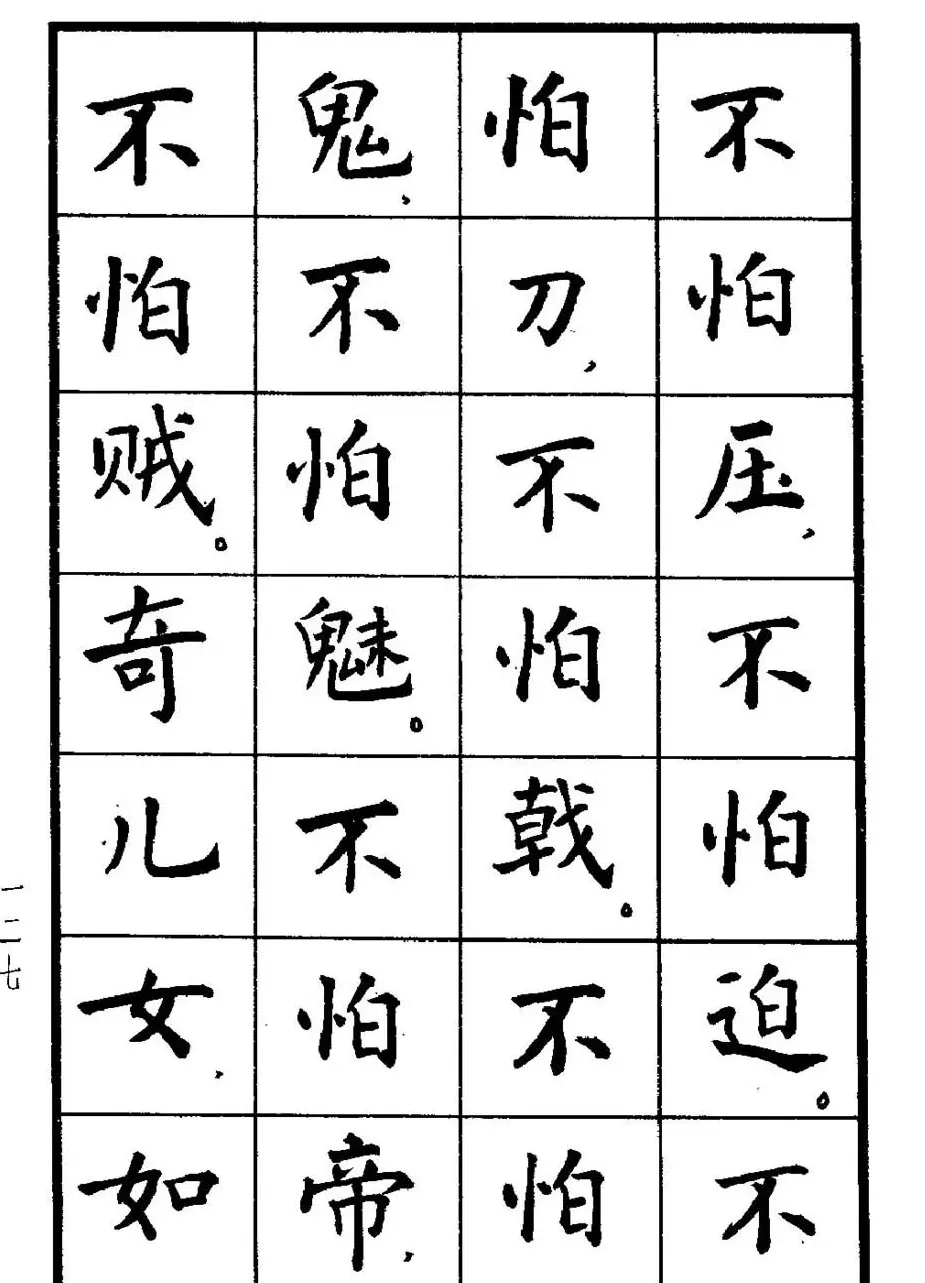 不怕压,不怕迫。不
怕刀,不怕戟。不怕
鬼,不怕魅。不怕帝,
不怕贼。奇儿女,如
一二七